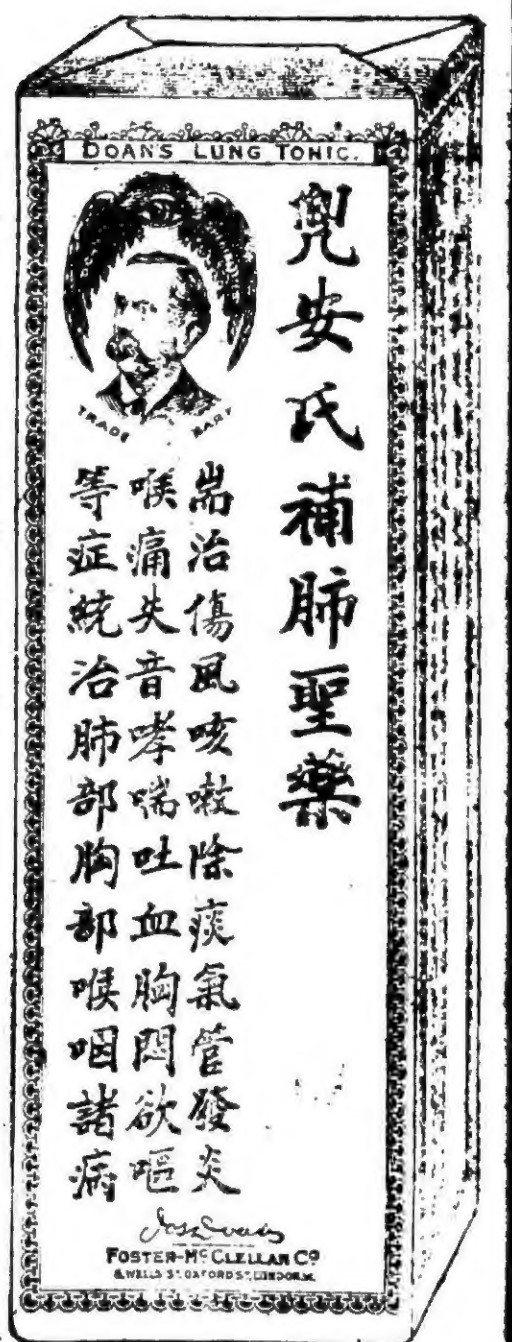 DOAN'S LUNG TONIC.
TRADE MARK
兜安氏補肺聖藥
耑治傷風咳嗽除痰氣管發炎
喉痛失音哮喘吐血胸悶欲嘔
等症統治肺部胸部喉咽諸病
FOSTER-McCLELLAN Co
8, WELLS ST OXFORD ST, LONDON. W.